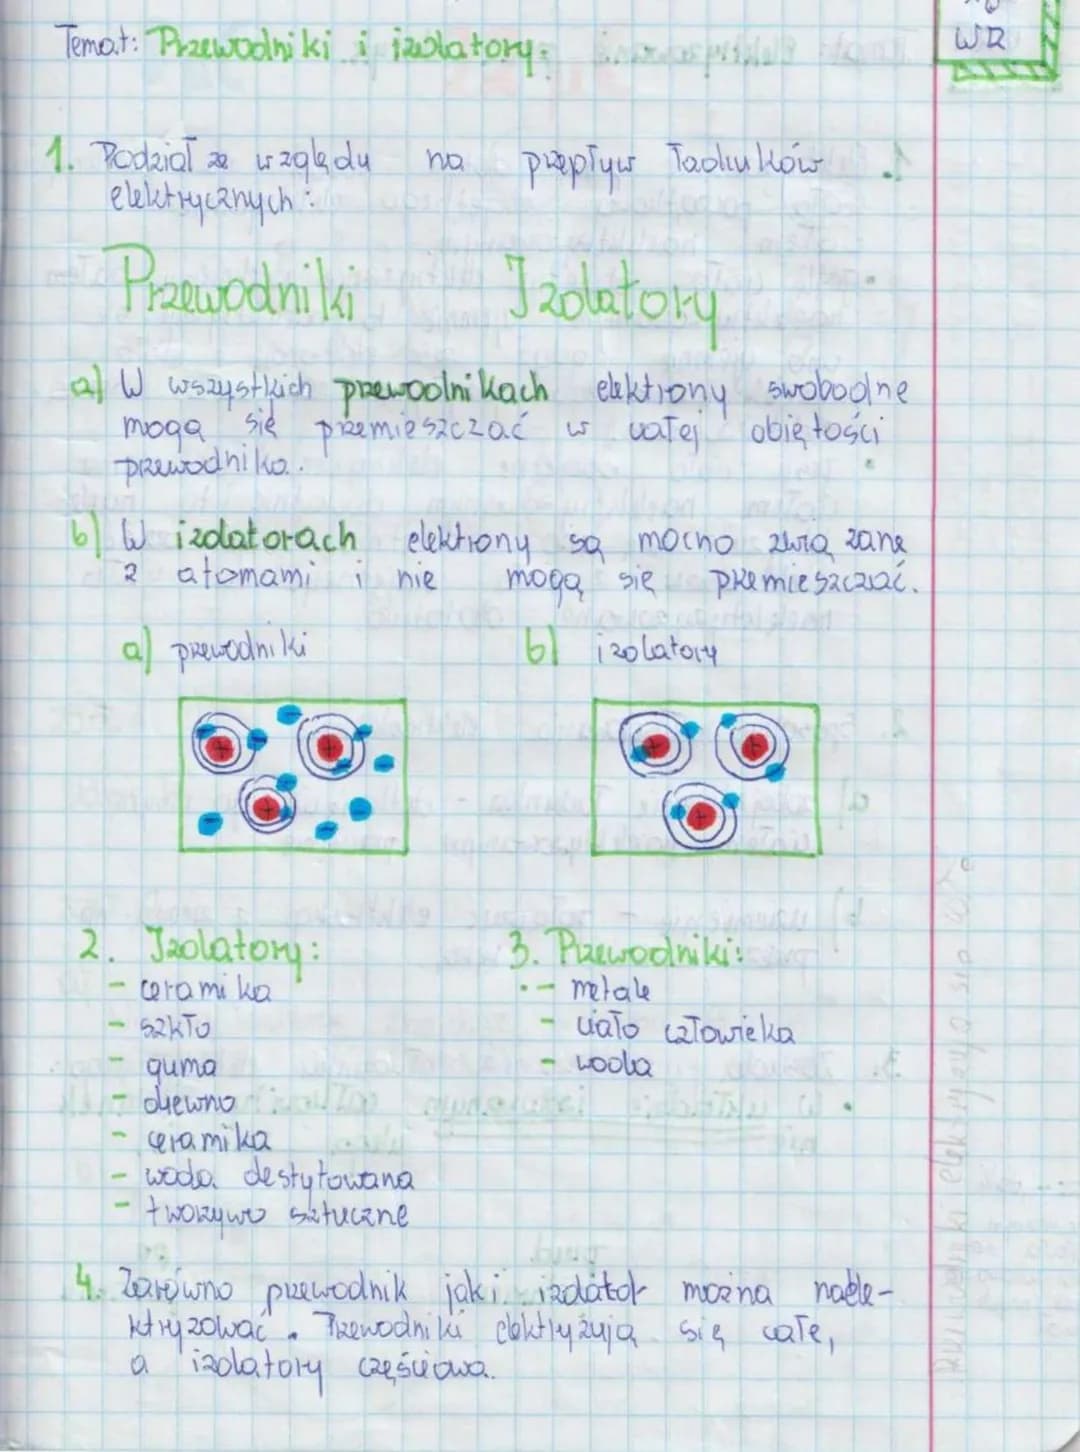 WR
Temat: Przewodniki i izolatory.
1. Podział ze względu na przepływ ładunków
elektrycznych:
Przewodniki Izolatory
a) W wszystkich przewodnikach elektrony swobodne
mogą się przemieszczać w całej objętości
przewodnika.
b) W izolatorach elektrony są mocno związane
z atomami i nie mogą się przemieszczać.
a) przewodniki b) izolatory
2. Izolatory:
- ceramika
- szkło
- guma
- drewno
- ceramika
- woda destylowana
- tworzywo sztuczne
3. Przewodniki:
- metale
- ciało człowieka
- woda
4. Zarówno przewodnik jak i izolator można naele-
ktryzować. Przewodniki elektryzują się całe,
a izolatory częściowa.